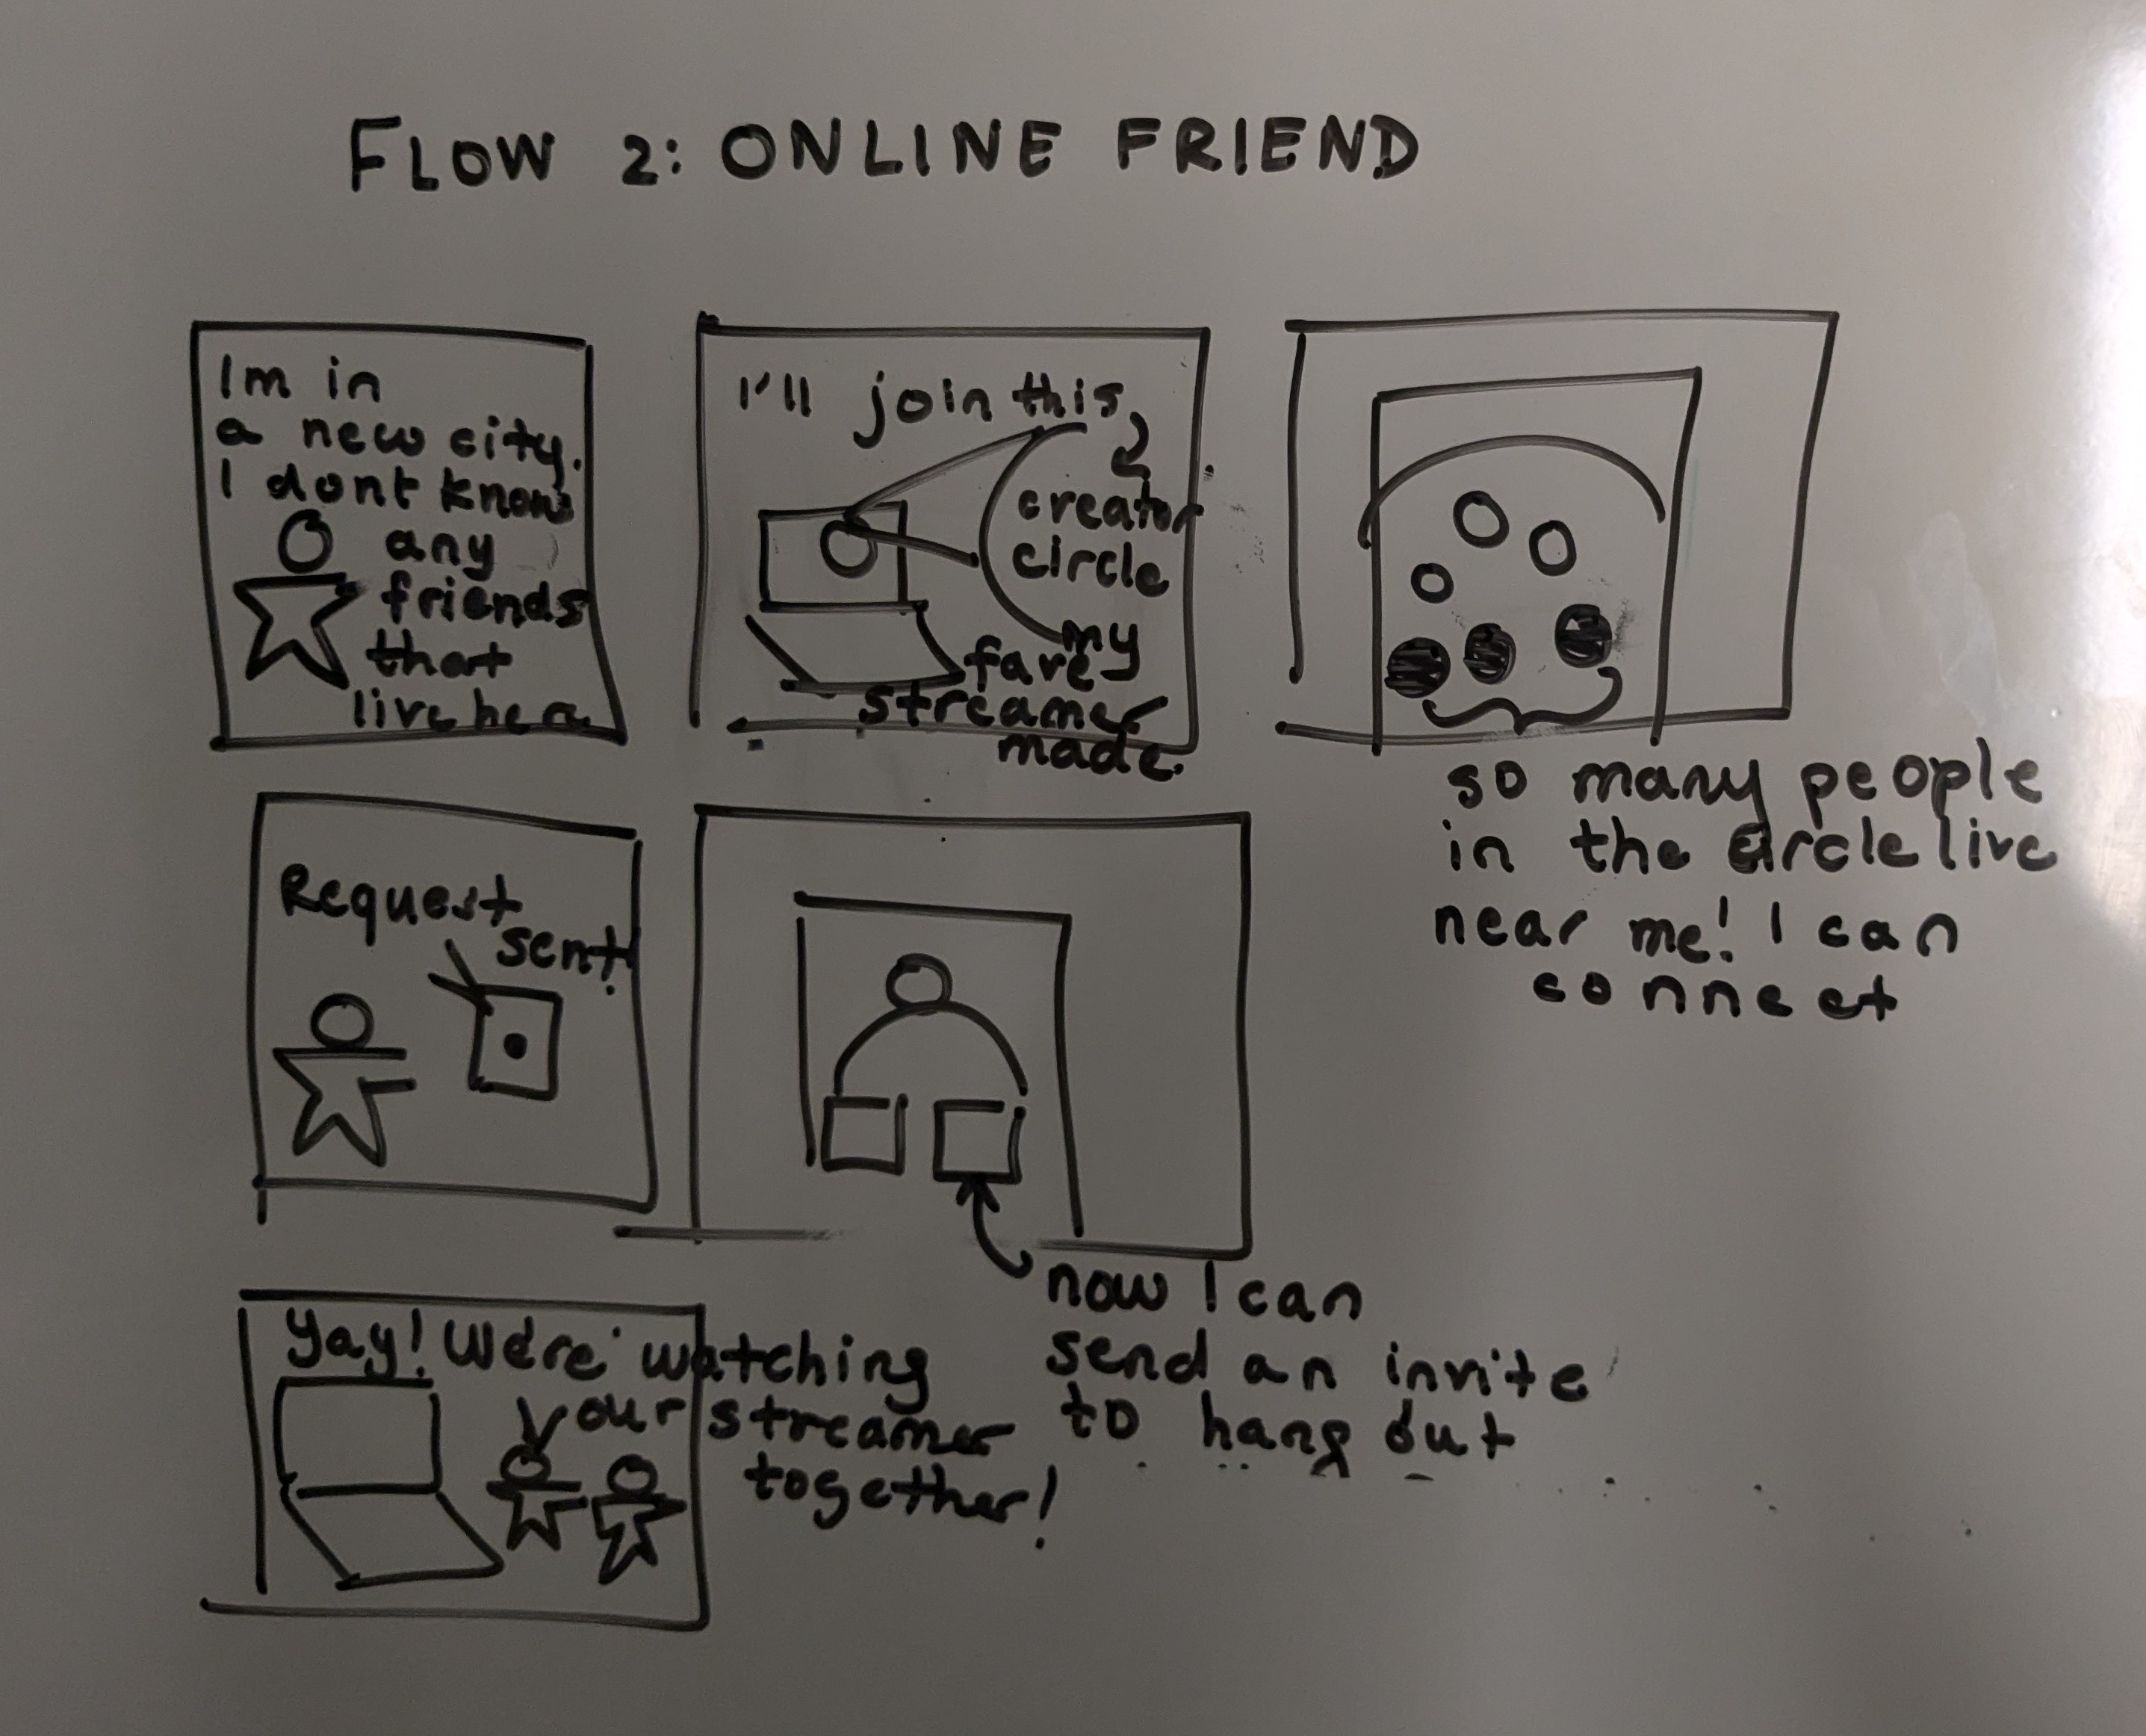 FLOW 2: ONLINE FRIEND
Im in
a new city.
I dont know
any
friends
that
live here
I'll join this
creator
circle
my
fave
streamer
made.
so many people
in the circle live
near me! I can
connect
Request
sent!
now I can
send an invite
to hang out
Yay! We're watching
our streamer
together!